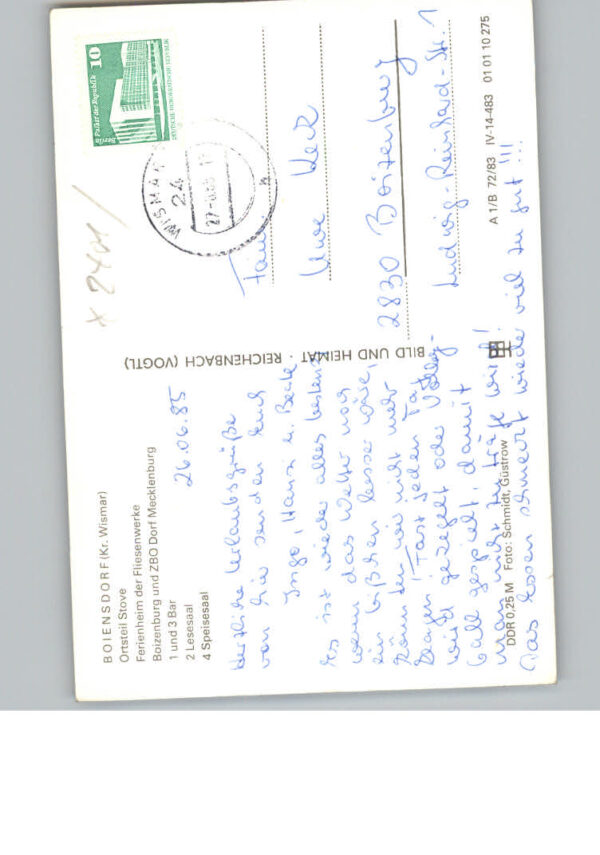 BOIENSDORF (Kr. Wismar)
Ortsteil Stove
Ferienheim der Fliesenwerke
Boizenburg und ZBO Dorf Mecklenburg
1 und 3 Bar
2 Lesesaal
4 Speisesaal
26.06.85
Herzliche Urlaubsgrüße
von hier senden Euch
Ingo, Hansi u. Beate
Es ist wieder alles bestens
wenn das Wetter noch
ein bißchen besser wäre,
könnten wir nicht mehr
klagen. Fast jeden Tag
wird gekegelt oder Volley-
ball gespielt, damit
man nicht zu träge wird!
Das Essen schmeckt wieder viel zu gut !!!
DDR 0,25 M Foto: Schmidt, Güstrow
BILD UND HEIMAT · REICHENBACH (VOGTL)
10
Palast der Republik
Berlin
DEUTSCHE DEMOKRATISCHE REPUBLIK
WISMAR
24
Fam.
Uwe Keck
2830 Boizenburg
Ludwig-Reinhard-Str. 1
A 1/B 72/83 IV-14-483 01 01 10 275